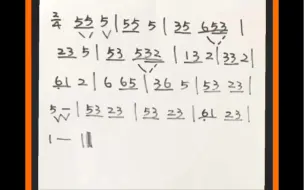 2/4 55 5 | 55 5 | 35 653 |
23 5 | 53 532 | 13 2 | 33 2 |
61 2 | 6 65 | 36 5 | 53 23 |
5 — | 53 23 | 53 23 | 61 23 |
1 — ‖